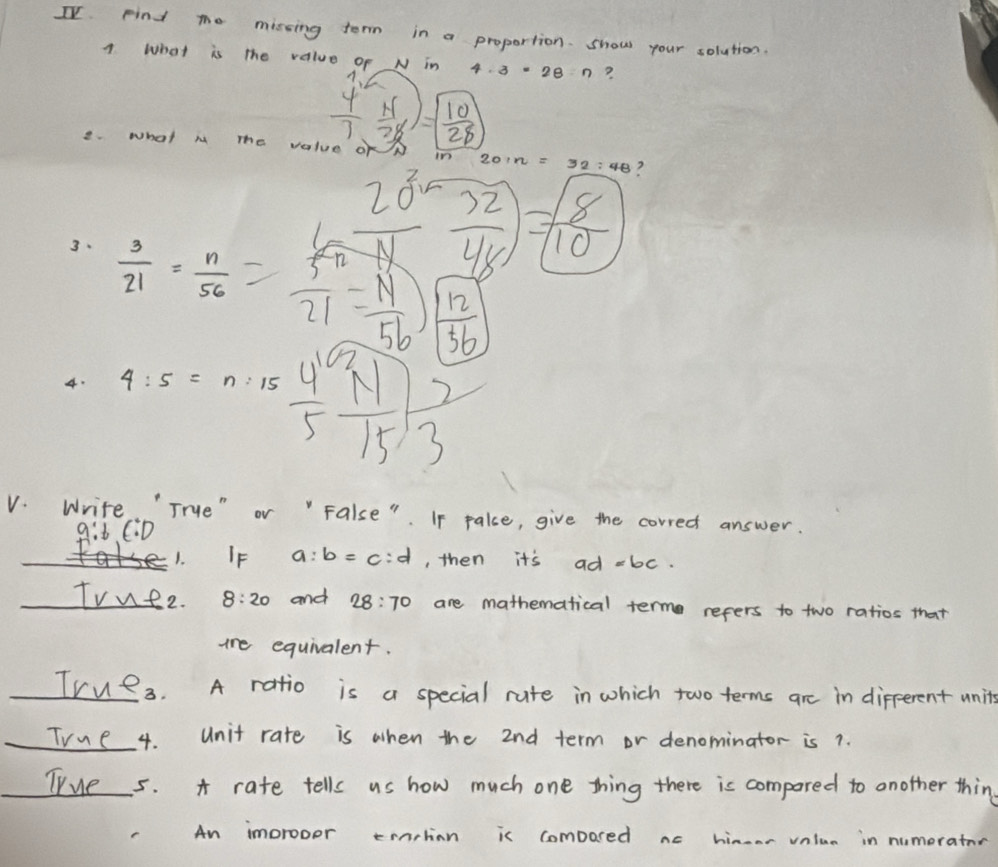 IV. Find the missing term in a proportion. Show your solution.
1. What is the value of N in 4:3 = 28:n?
4/7 N/28 = 10/28
2. What is the value of N in 20:n = 32:48?
20/N 32/48 = 8/10
3. 3/21 = n/56 = 3/21 = N/56 12/36
4. 4:5 = n:15 4/5 N/15 2/3
V. Write "True" or "False". If false, give the correct answer.
a:b C:D
1. IF a:b = c:d, then it's ad = bc.
True 2. 8:20 and 28:70 are mathematical terms refers to two ratios that
are equivalent.
True 3. A ratio is a special rate in which two terms are in different units
True 4. Unit rate is when the 2nd term or denominator is 1.
True 5. A rate tells us how much one thing there is compared to another thing
An improper is compared as value in numerator